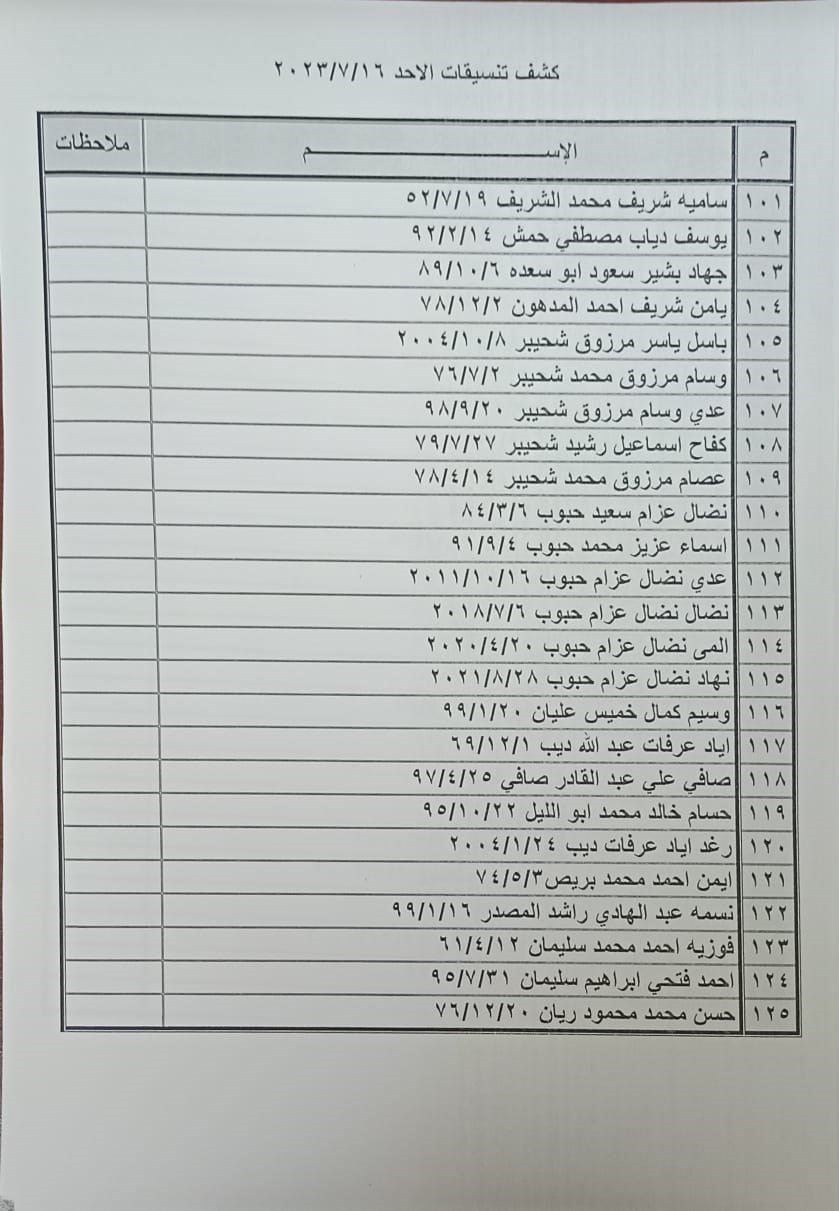 كشف تنسيقات الاحد ٢٠٢٣/٧/١٦
م الإسـم ملاحظات
١٠١ ساميه شريف محمد الشريف ٥٢/٧/١٩
١٠٢ يوسف دياب مصطفي حمش ٩٢/٢/١٤
١٠٣ جهاد بشير سعود ابو سعده ٨٩/١٠/٦
١٠٤ يامن شريف احمد المدهون ٧٨/١٢/٢
١٠٥ باسل ياسر مرزوق شحيبر ٢٠٠٤/١٠/٨
١٠٦ وسام مرزوق محمد شحيبر ٧٦/٧/٢
١٠٧ عدي وسام مرزوق شحيبر ٩٨/٩/٢٠
١٠٨ كفاح اسماعيل رشيد شحيبر ٧٩/٧/٢٧
١٠٩ عصام مرزوق محمد شحيبر ٧٨/٤/١٤
١١٠ نضال عزام سعيد حبوب ٨٤/٣/٦
١١١ اسماء عزيز محمد حبوب ٩١/٩/٤
١١٢ عدي نضال عزام حبوب ٢٠١١/١٠/١٦
١١٣ نضال نضال عزام حبوب ٢٠١٨/٧/٦
١١٤ المى نضال عزام حبوب ٢٠٢٠/٤/٢٠
١١٥ نهاد نضال عزام حبوب ٢٠٢١/٨/٢٨
١١٦ وسيم كمال خميس عليان ٩٩/١/٢٠
١١٧ اياد عرفات عبد الله ديب ٦٩/١٢/١
١١٨ صافي علي عبد القادر صافي ٩٧/٤/٢٥
١١٩ حسام خالد محمد ابو الليل ٩٥/١٠/٢٢
١٢٠ رغد اياد عرفات ديب ٢٠٠٤/١/٢٤
١٢١ ايمن احمد محمد بريص ٧٤/٥/٣
١٢٢ نسمه عبد الهادي راشد المصدر ٩٩/١/١٦
١٢٣ فوزيه احمد محمد سليمان ٦١/٤/١٢
١٢٤ احمد فتحي ابراهيم سليمان ٩٥/٧/٣١
١٢٥ حسن محمد محمود ريان ٧٦/١٢/٢٠